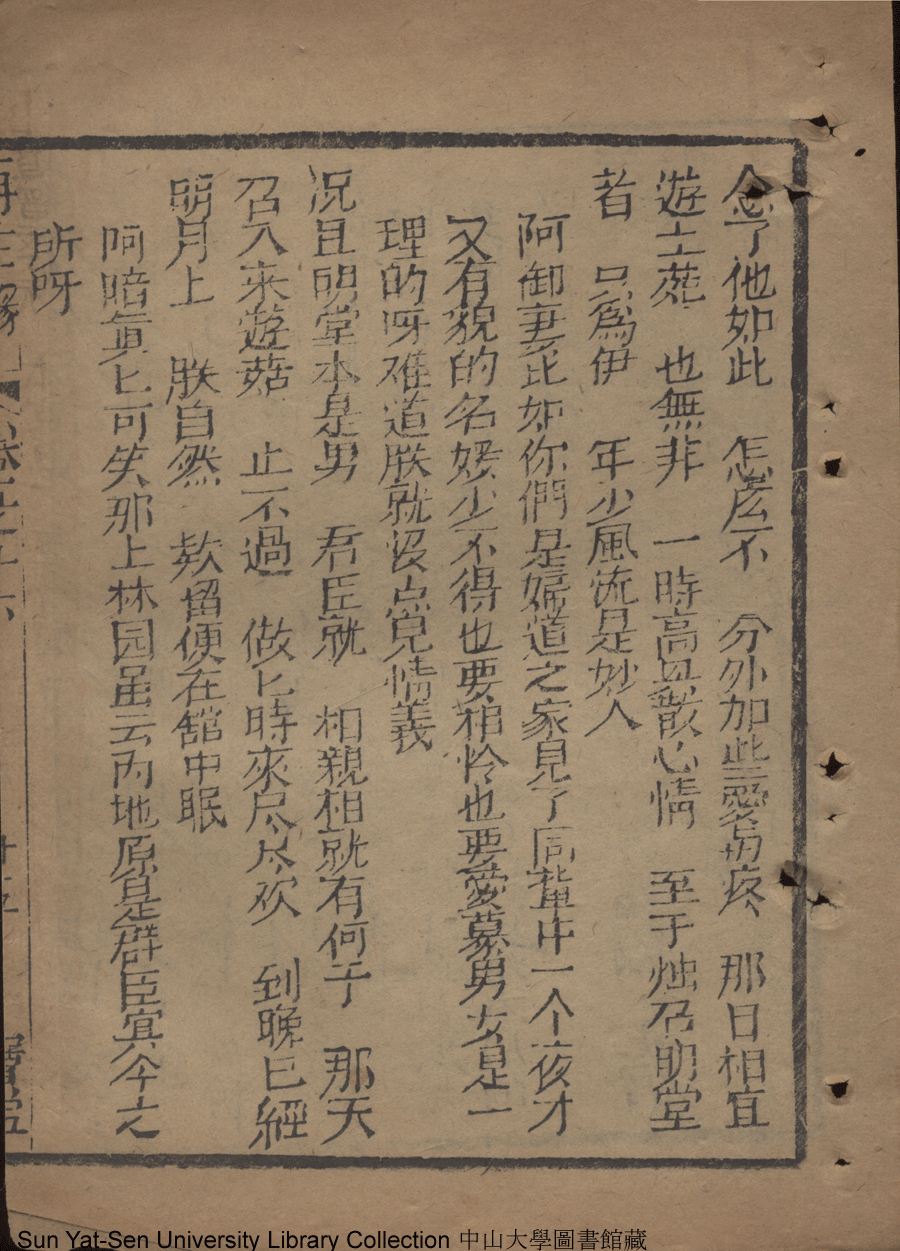 念了他如此 怎庅不 分外加些愛與疼 那日相宜
遊上苑 也無非 一時高興散心情 至于独召明堂
者 只爲伊 年少風流是妙人
阿御妻比如你們是婦道之家見了同輩中一个孩才
又有貌的名媛少不得也要相怜也要愛慕男女是一
理的呀难道朕就沒点兒情義
况且明堂本是男 君臣就 相親相就有何干 那天
召入來遊菇 止不過 做匕時來尽尽欢 到晚已經
明月上 朕自然 欵留便在舘中眠
呵暗眞匕可笑那上林园虽云内地原是群臣宾今之
所呀
再生緣 卷之十六
Sun Yat-Sen University Library Collection 中山大學圖書館藏